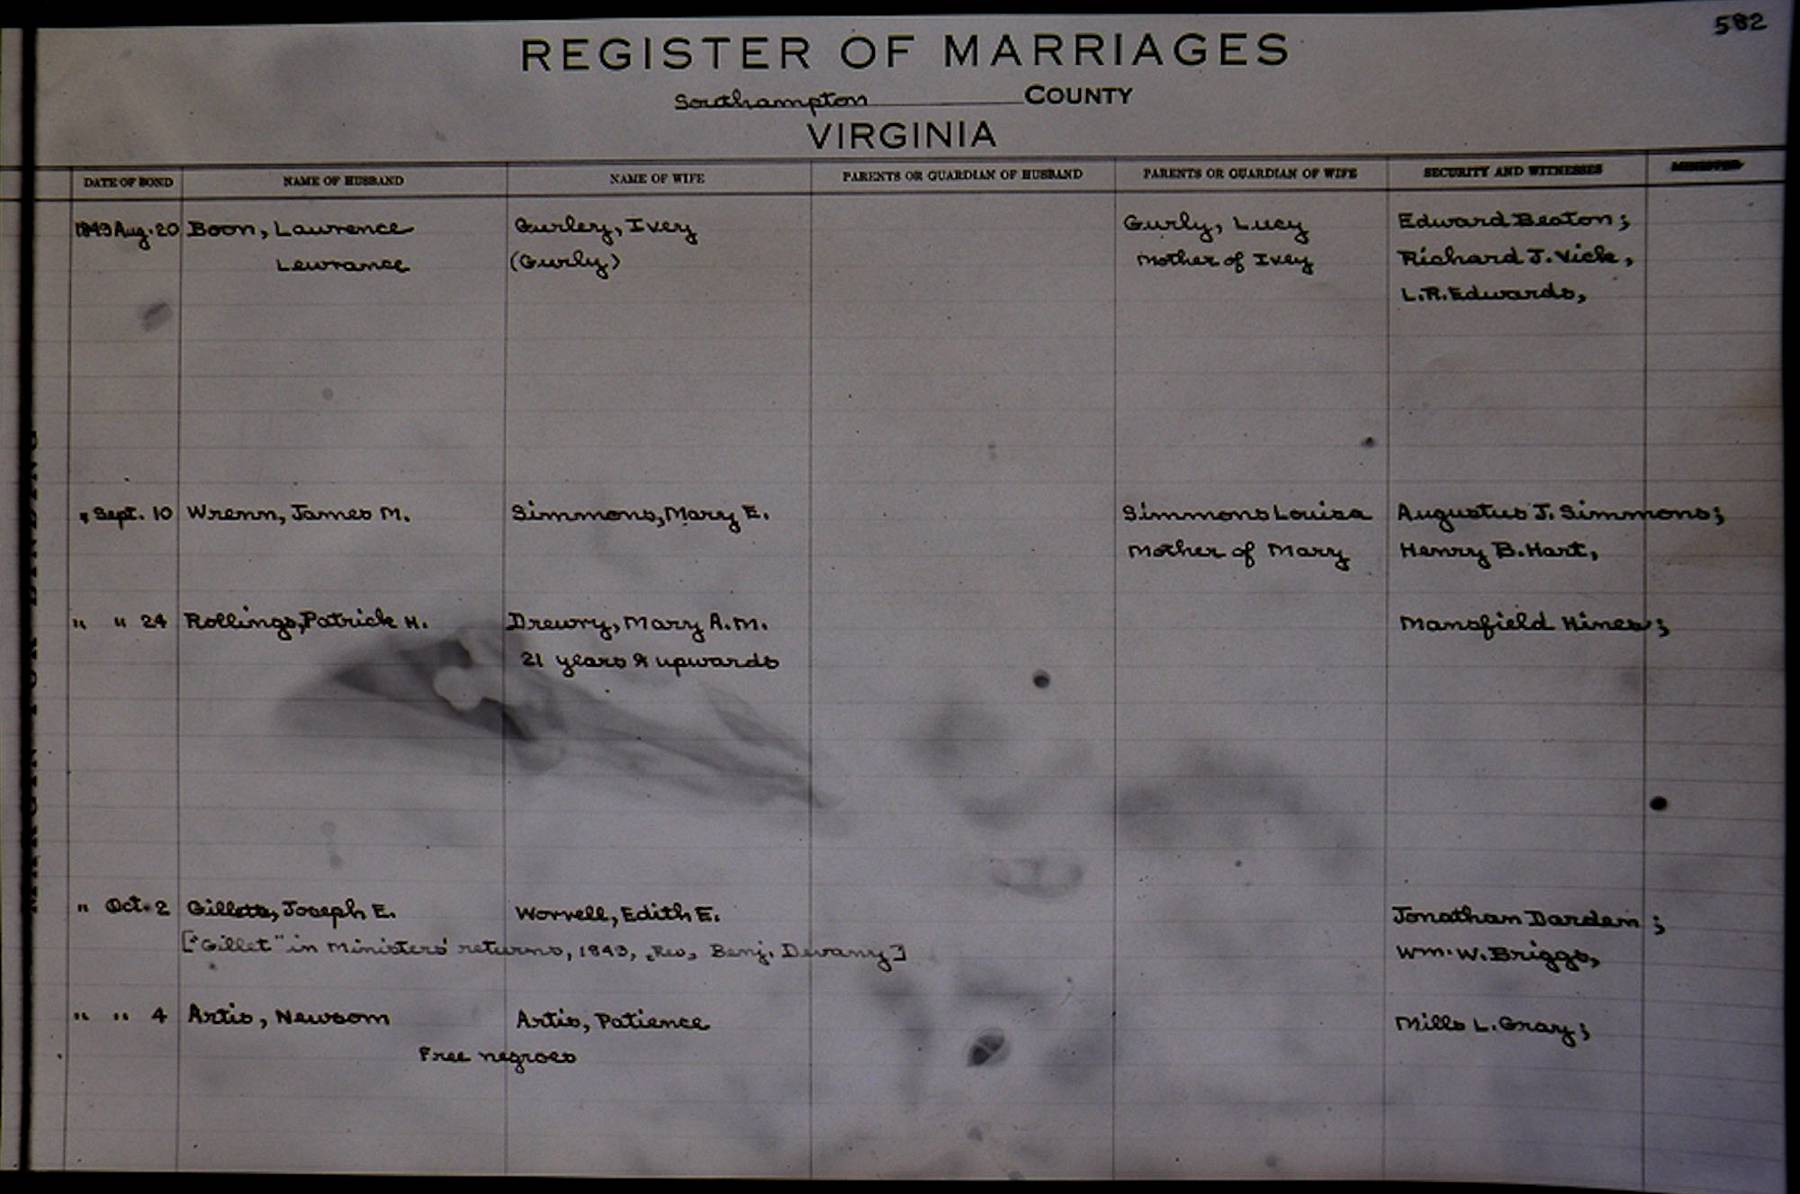 582
REGISTER OF MARRIAGES
Southampton COUNTY
VIRGINIA
DATE OF BOND NAME OF HUSBAND NAME OF WIFE PARENTS OR GUARDIAN OF HUSBAND PARENTS OR GUARDIAN OF WIFE SECURITY AND WITNESSES
1843 Aug. 20 Boon, Lawrence Gurley, Ivey Gurly, Lucy Edward Beaton;
Lewrance (Gurly) Mother of Ivey Richard J. Vick,
L.R. Edwards,
" Sept. 10 Wrenn, James M. Simmons, Mary E. Simmons Louisa Augustus J. Simmons;
Mother of Mary Henry B. Hart,
" " 24 Rollings, Patrick H. Drewry, Mary A.M. Mansfield Hines;
21 years & upwards
" Oct. 2 Gillette, Joseph E. Worrell, Edith E. Jonathan Darden;
["Gillet" in Ministers' returns, 1843, Rev. Benj. Devany] Wm. W. Briggs,
" " 4 Artis, Newsom Artis, Patience Mills L. Gray;
Free negroes